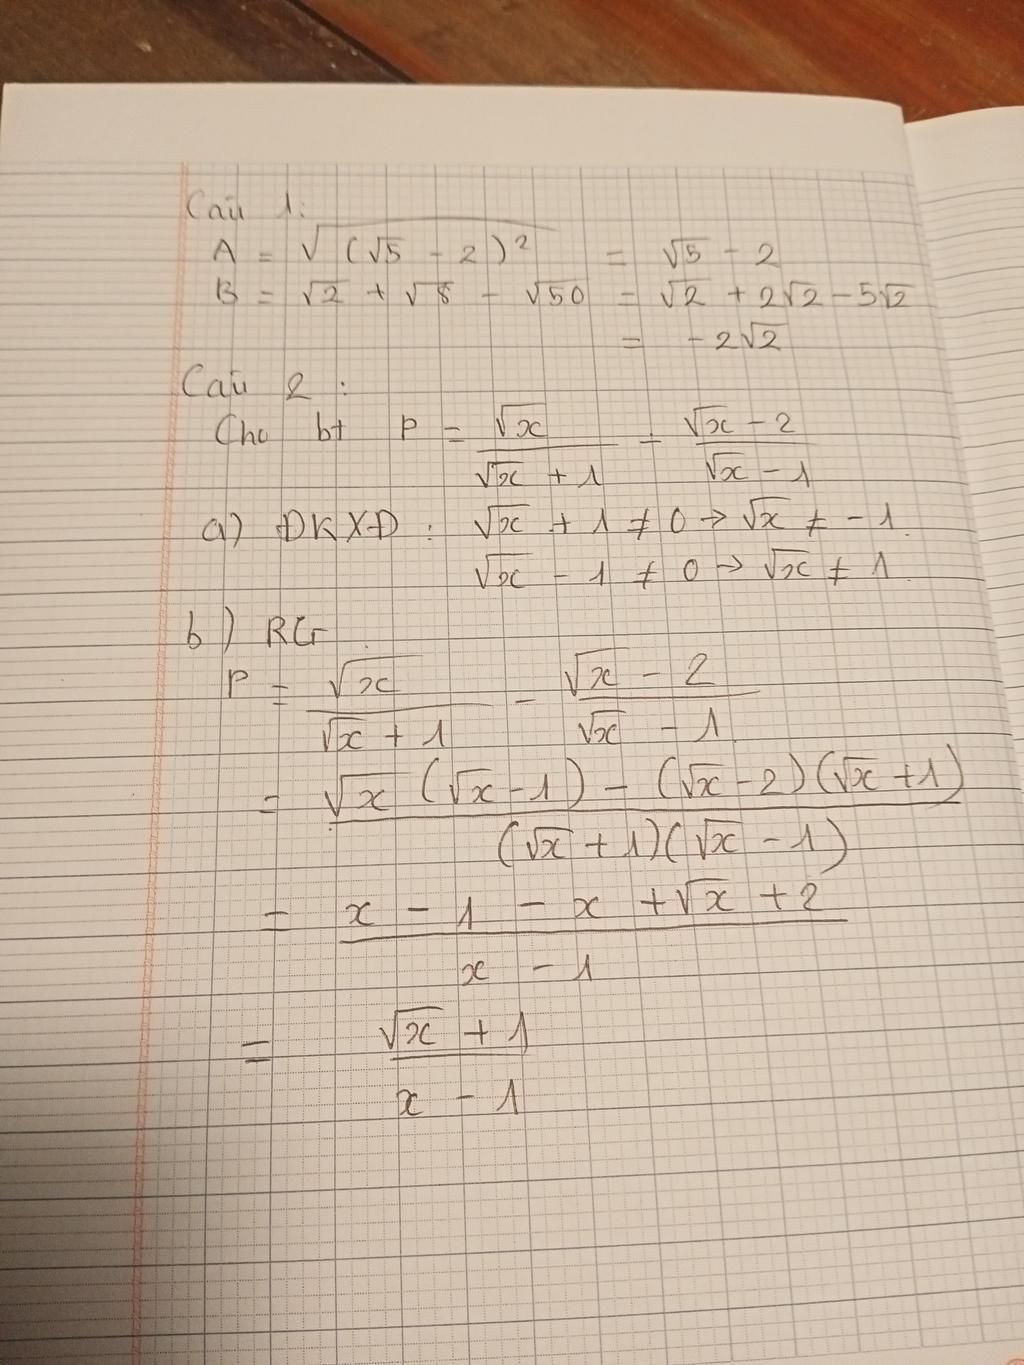 Câu 1:
A = √(√5 - 2)² = √5 - 2
B = √2 + √8 - √50 = √2 + 2√2 - 5√2
= - 2√2
Câu 2 :
Cho bt P = √x / (√x + 1) - (√x - 2) / (√x - 1)
a) ĐKXĐ : √x + 1 ≠ 0 → √x ≠ - 1.
√x - 1 ≠ 0 → √x ≠ 1
b) RG
P = √x / (√x + 1) - (√x - 2) / (√x - 1)
= (√x (√x - 1) - (√x - 2)(√x + 1)) / ((√x + 1)(√x - 1))
= (x - 1 - x + √x + 2) / (x - 1)
= (√x + 1) / (x - 1)